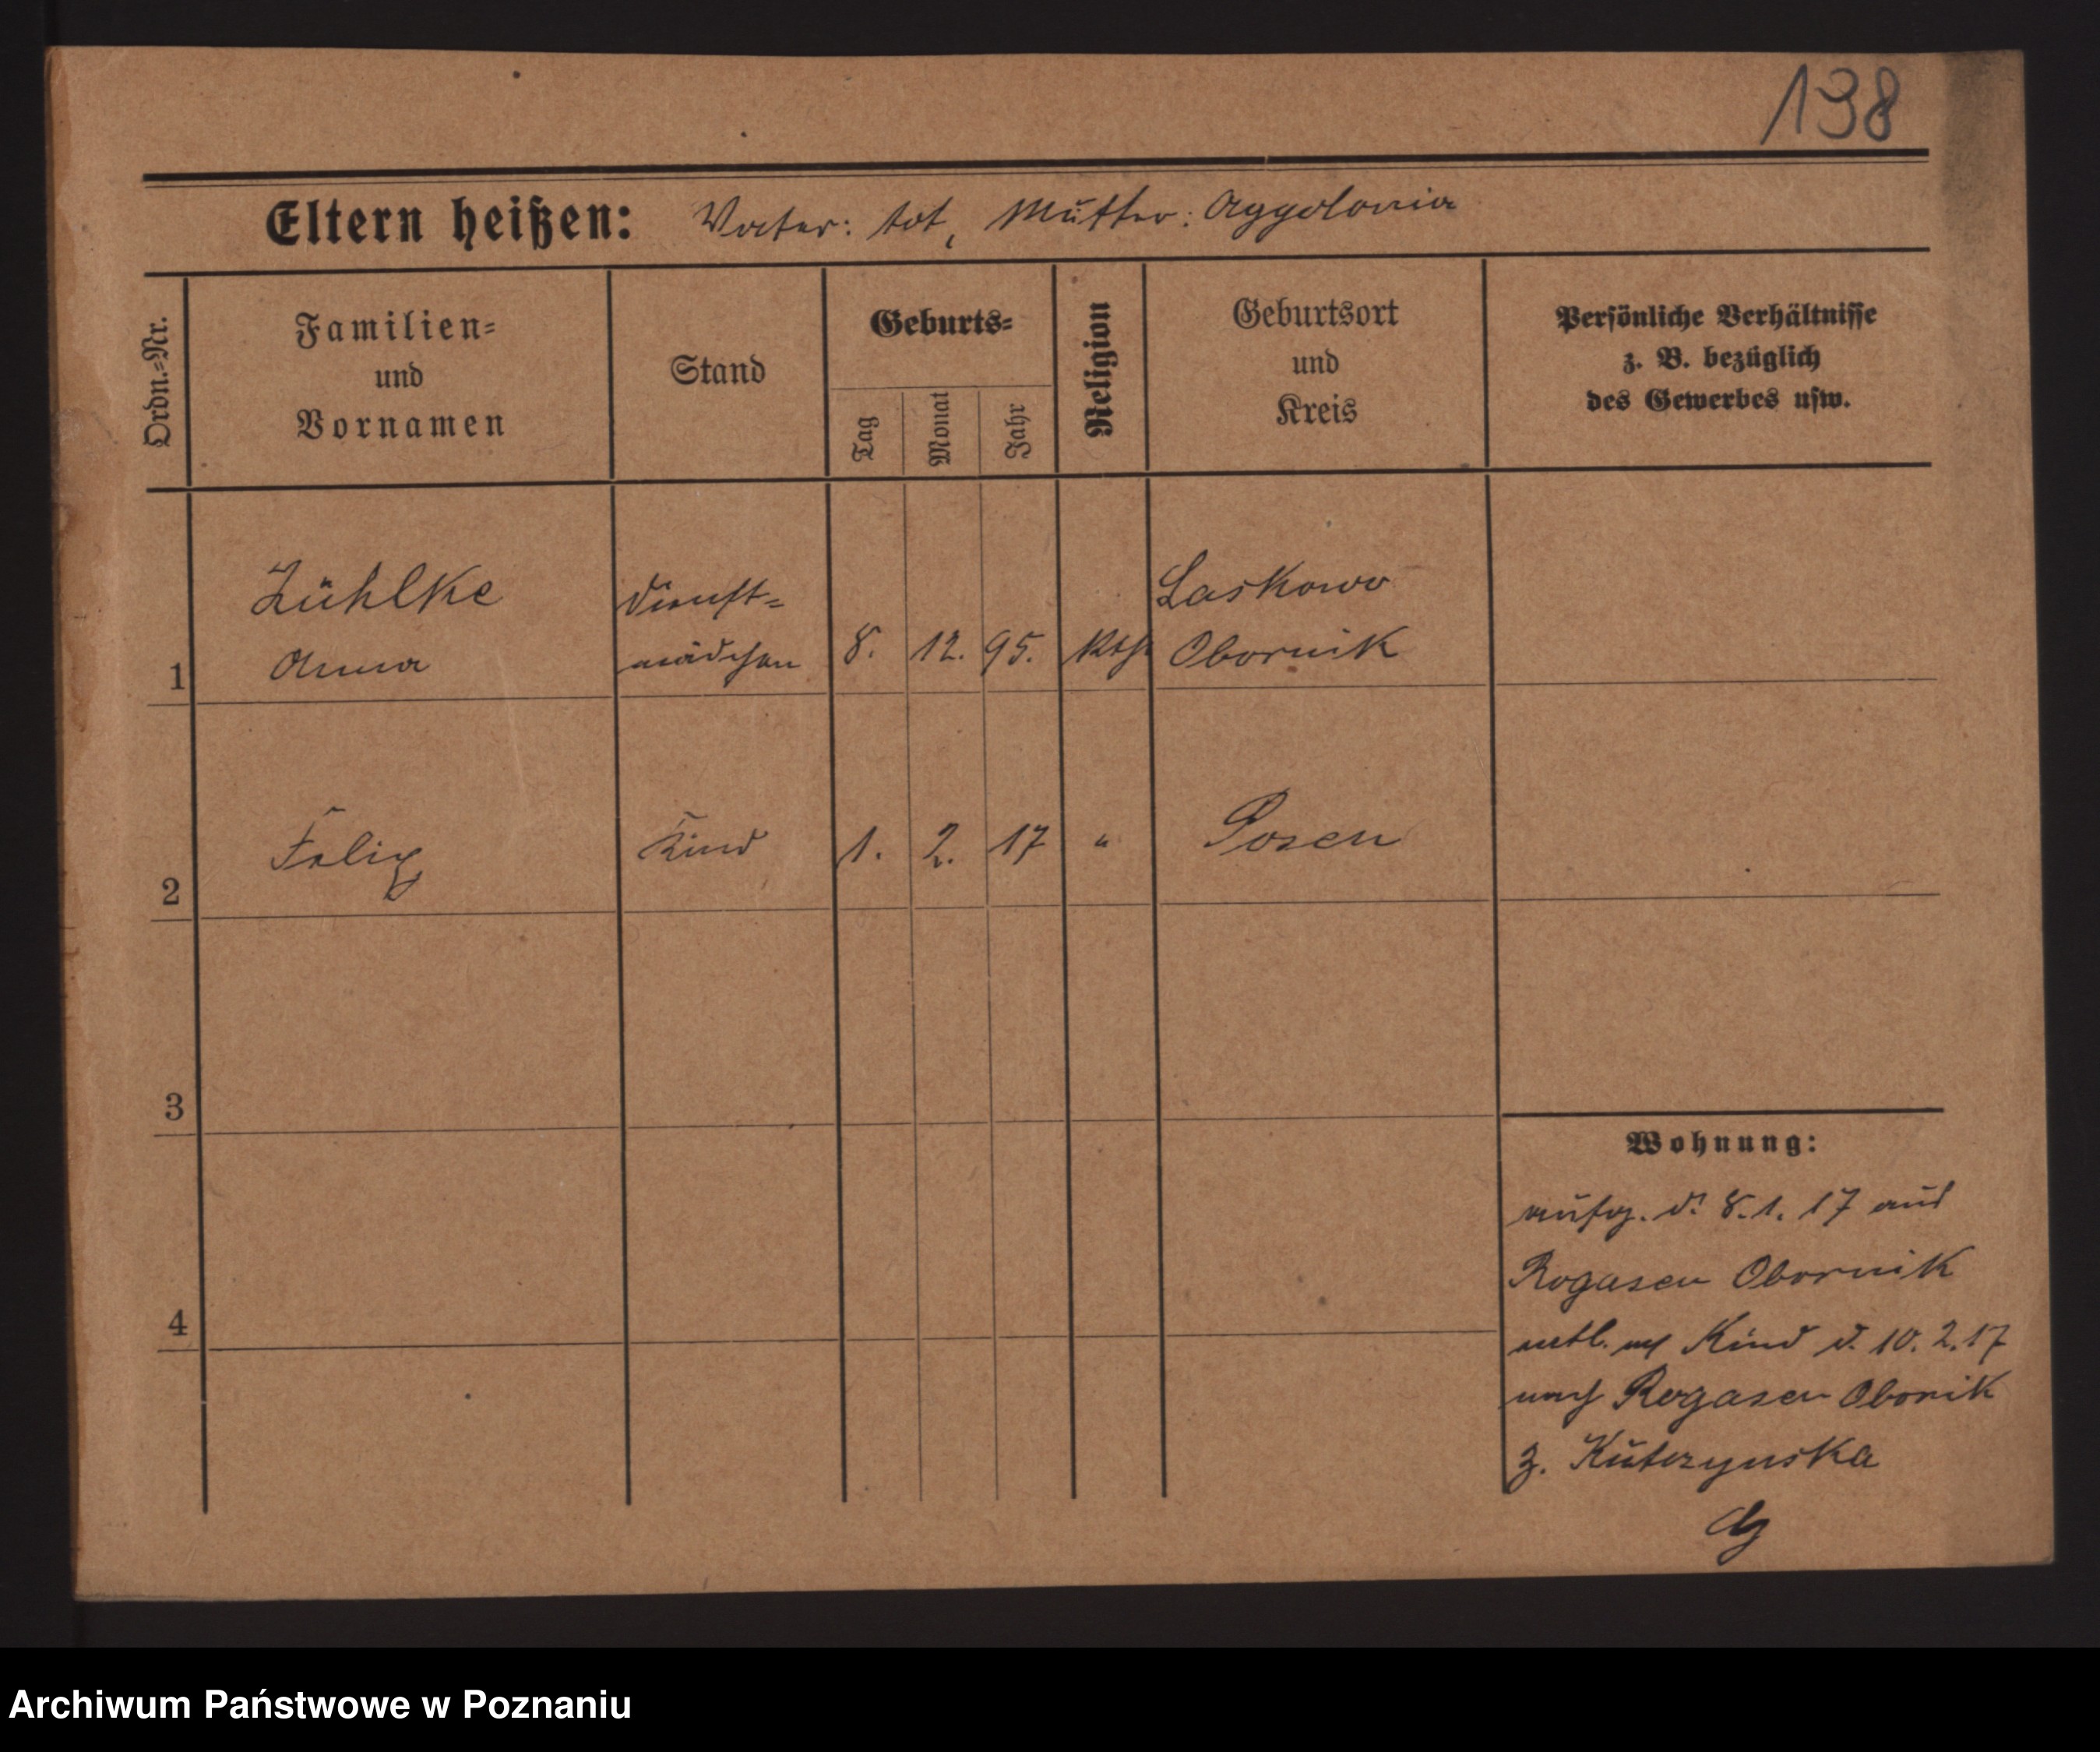 138
Eltern heißen: Vater: tot, Mutter: Appolonia
Ordn.=Nr.
Familien=
und
Vornamen
Stand
Geburts=
Tag
Monat
Jahr
Religion
Geburtsort
und
Kreis
Persönliche Verhältnisse
z. B. bezüglich
des Gewerbes usw.
Zühlke Dienst= Laskowo
1 Anna mädchen 8. 12. 95. kth Obornik
2 Felix Kind 1. 2. 17 " Posen
3
4
Wohnung:
zugez. d. 8. 1. 17 aus
Rogasen Obornik
entl. m Kind d. 10. 2. 17
nach Rogasen Obornik
z. Kutzynska
Archiwum Państwowe w Poznaniu